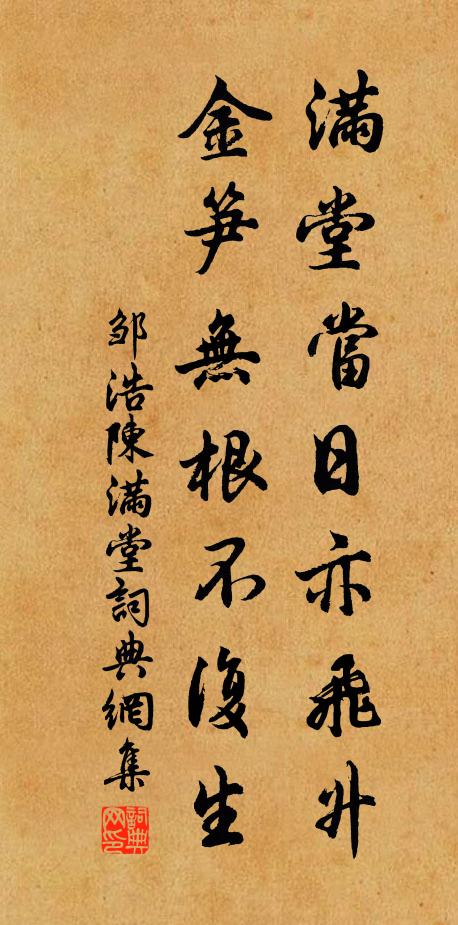 滿堂當日亦飛升
金笋無根不復生
鄒浩陳滿堂詞典網集
詞典网印